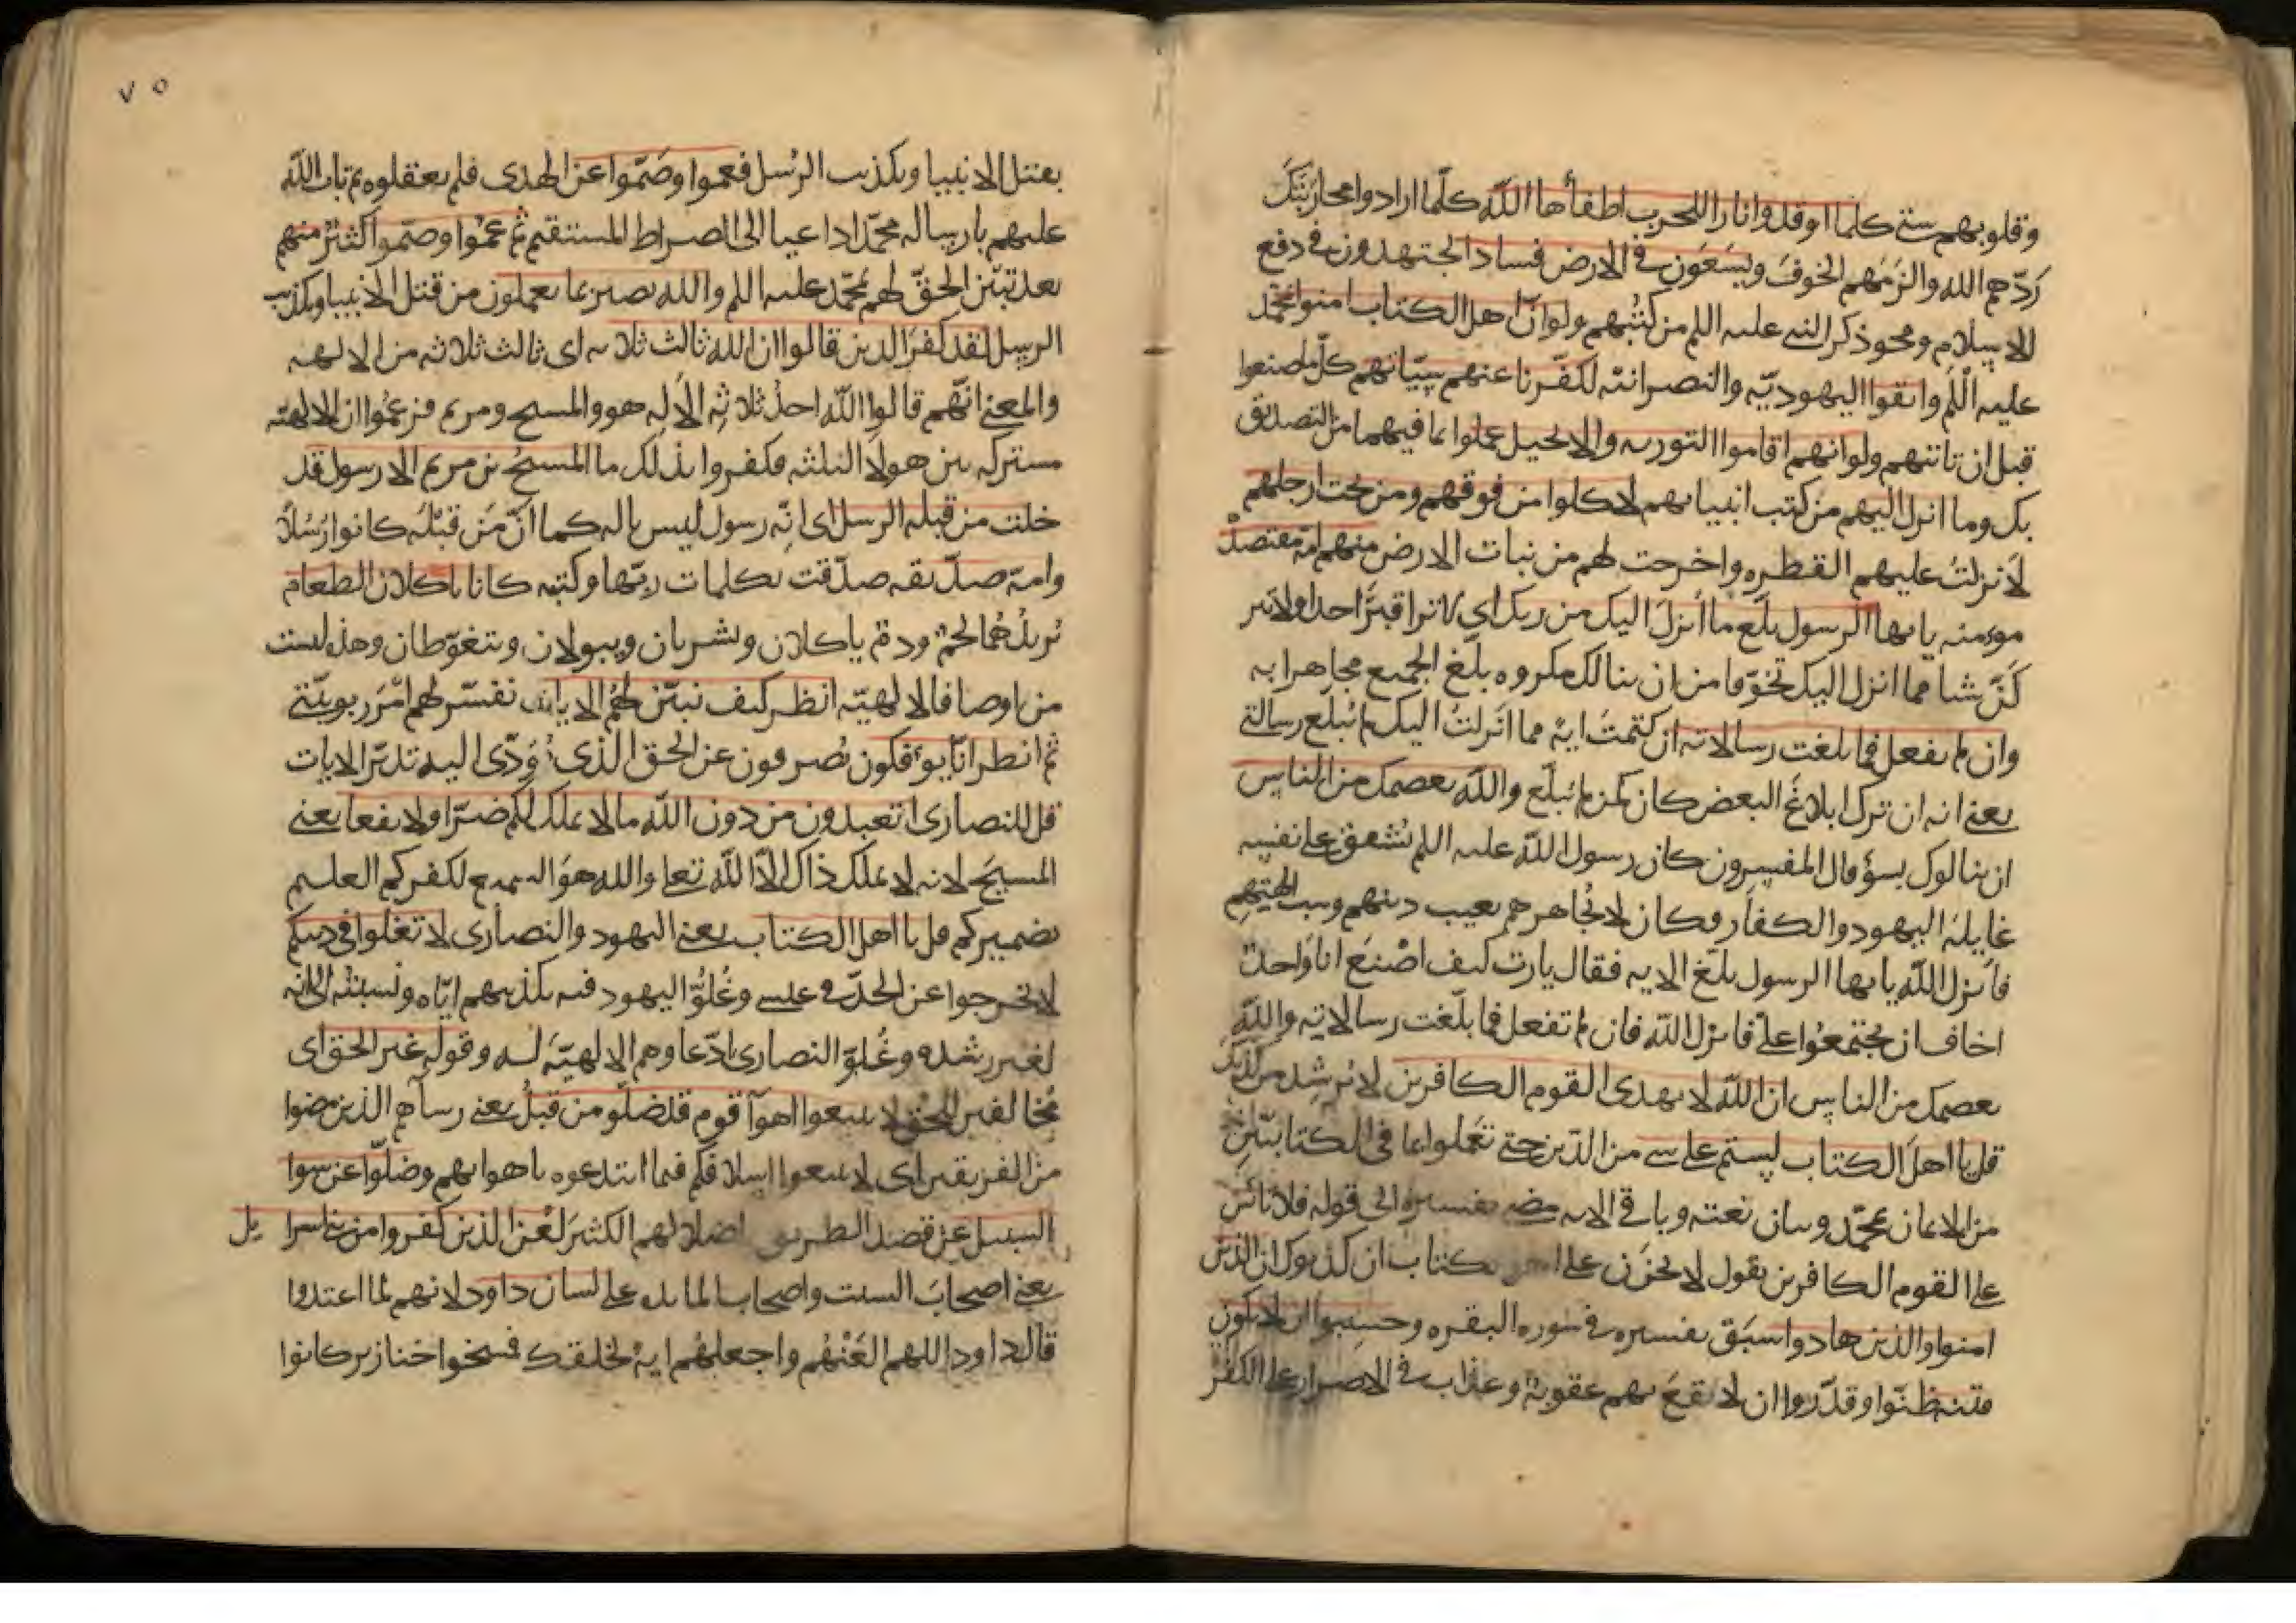 وقلوبهم شتى كلما اوقدوا نارا للحرب اطفأها الله كلما ارادوا محاربتك
ردهم الله والزمهم الخوف ويسعون في الارض فسادا يجتهدون في دفع
الاسلام ومحو ذكر النبي عليه اللم من كتبهم ولو ان اهل الكتاب امنوا بمحمد
عليه اللم واتقوا اليهوديه والنصرانيه لكفرنا عنهم سيئاتهم كل ما صنعوا
قبل ان تاتيهم ولو انهم اقاموا التوريه والانجيل عملوا بما فيهما من التصديق
بك وما انزل اليهم من كتب انبياىهم لاكلوا من فوقهم ومن تحت ارجلهم
لانزلت عليهم القطره واخرجت لهم من نبات الارض منهم امة مقتصد
مومنه يا ىها الرسول بلغ ما انزل اليك من ربك اي لا تراقبن احدا ولا تتر
كن شيا مما انزل اليك تخوفا من ان ينالك مكروه بلغ الجميع مجاهرا به
وان لم تفعل فما بلغت رسالاته ان كتمت ايه مما انزلت اليك لم تبلغ رسالتي
يعني انه ان ترك ابلاغ البعض كان كمن لم يبلغ والله يعصمك من الناس
ان ينالوك بسؤ قال المفسرون كان رسول الله عليه اللم يشفق على نفسه
غايلة اليهود والكفار وكان لا يجاهرهم بعيب دينهم وسب الهتهم
فانزل الله يا ىها الرسول بلغ الايه فقال يا رب كيف اصنع انا واحد
اخاف ان يجتمعوا علي فانزل الله فان لم تفعل فما بلغت رسالاته والله
يعصمك من الناس ان الله لا يهدى القوم الكافرين لا يرشد من كذبك
قل يا اهل الكتاب لستم على سي من الدين حتى تعملوا بما في الكتابين
من الايمان بمحمد وبيان نعته وباقي الايه مضى تفسيره الى قوله فلا تأس
على القوم الكافرين يقول لا تحزن على اهل الكتاب ان كذبوك ان الذين
امنوا والذين هادوا سبق تفسيره في سوره البقره وحسبوا ان لا تكون
فتنه ظنوا وقدروا ان لا تقع بهم عقوبة وعذاب في الاصرار على الكفر
٧٥
بقتل الانبيا وتكذيب الرسل فعموا وصموا عن الهدى فلم يعقلوه ثم تاب الله
عليهم بارساله محمدا داعيا الى الصراط المستقيم ثم عموا وصموا كثير منهم
بعد تبين الحق لهم بمحمد عليه اللم والله بصير بما يعملون من قتل الانبيا وتكذيب
الرسل لقد كفر الذين قالوا ان الله ثالث ثلاثه اى ثالث ثلاثه من الالهه
والمعنى انهم قالوا الله احد ثلاثة الاله هو والمسيح ومريم فزعموا ان الالهيه
مشتركه بين هولا الثلثه فكفروا بذلك ما المسيح بن مريم الا رسول قد
خلت من قبله الرسل اى انه رسول ليس باله كما ان من قبله كانوا رسلا
وامه صديقه صدقت بكلمات ربها وكتبه كانا ياكلان الطعام
يريد هما لحم ودم ياكلان ويشربان ويبولان ويتغوطان وهذه ليست
من اوصاف الالهيه انظر كيف نبين لهم الايات نفسر لهم امر ربوبيتي
ثم انظر انى يوفكون يصرفون عن الحق الذى يؤدى اليه تدبر الايات
قل للنصارى اتعبدون من دون الله ما لا يملك لكم ضرا ولا نفعا يعنى
المسيح لانه لا يملك ذاك الا الله تعا والله هو السميع لكفركم العليم
بضميركم قل يا اهل الكتاب يعنى اليهود والنصارى لا تغلوا في دينكم
لا تخرجوا عن الحد في عيسى وغلو اليهود فيه بتكذيبهم اياه ونسبته الى انه
لغير رشده وغلو النصارى ادعاوهم الالهيه له وقوله غير الحق اى
مخالفين للحق لا تتبعوا اهوآ قوم قد ضلوا من قبل يعنى رساهم الذين مضوا
من الفريقين اى لا تتبعوا اسلافكم فيما ابتدعوه باهوايهم وضلوا عن سوا
السبيل عن قصد الطريق باضلالهم الكثير لعن الذين كفروا من بني اسرا يل
يعنى اصحاب السبت واصحاب المايده على لسان داود لانهم لما اعتدوا
قال داود اللهم العنهم واجعلهم اية لخلقك فمسخوا خنازير كانوا